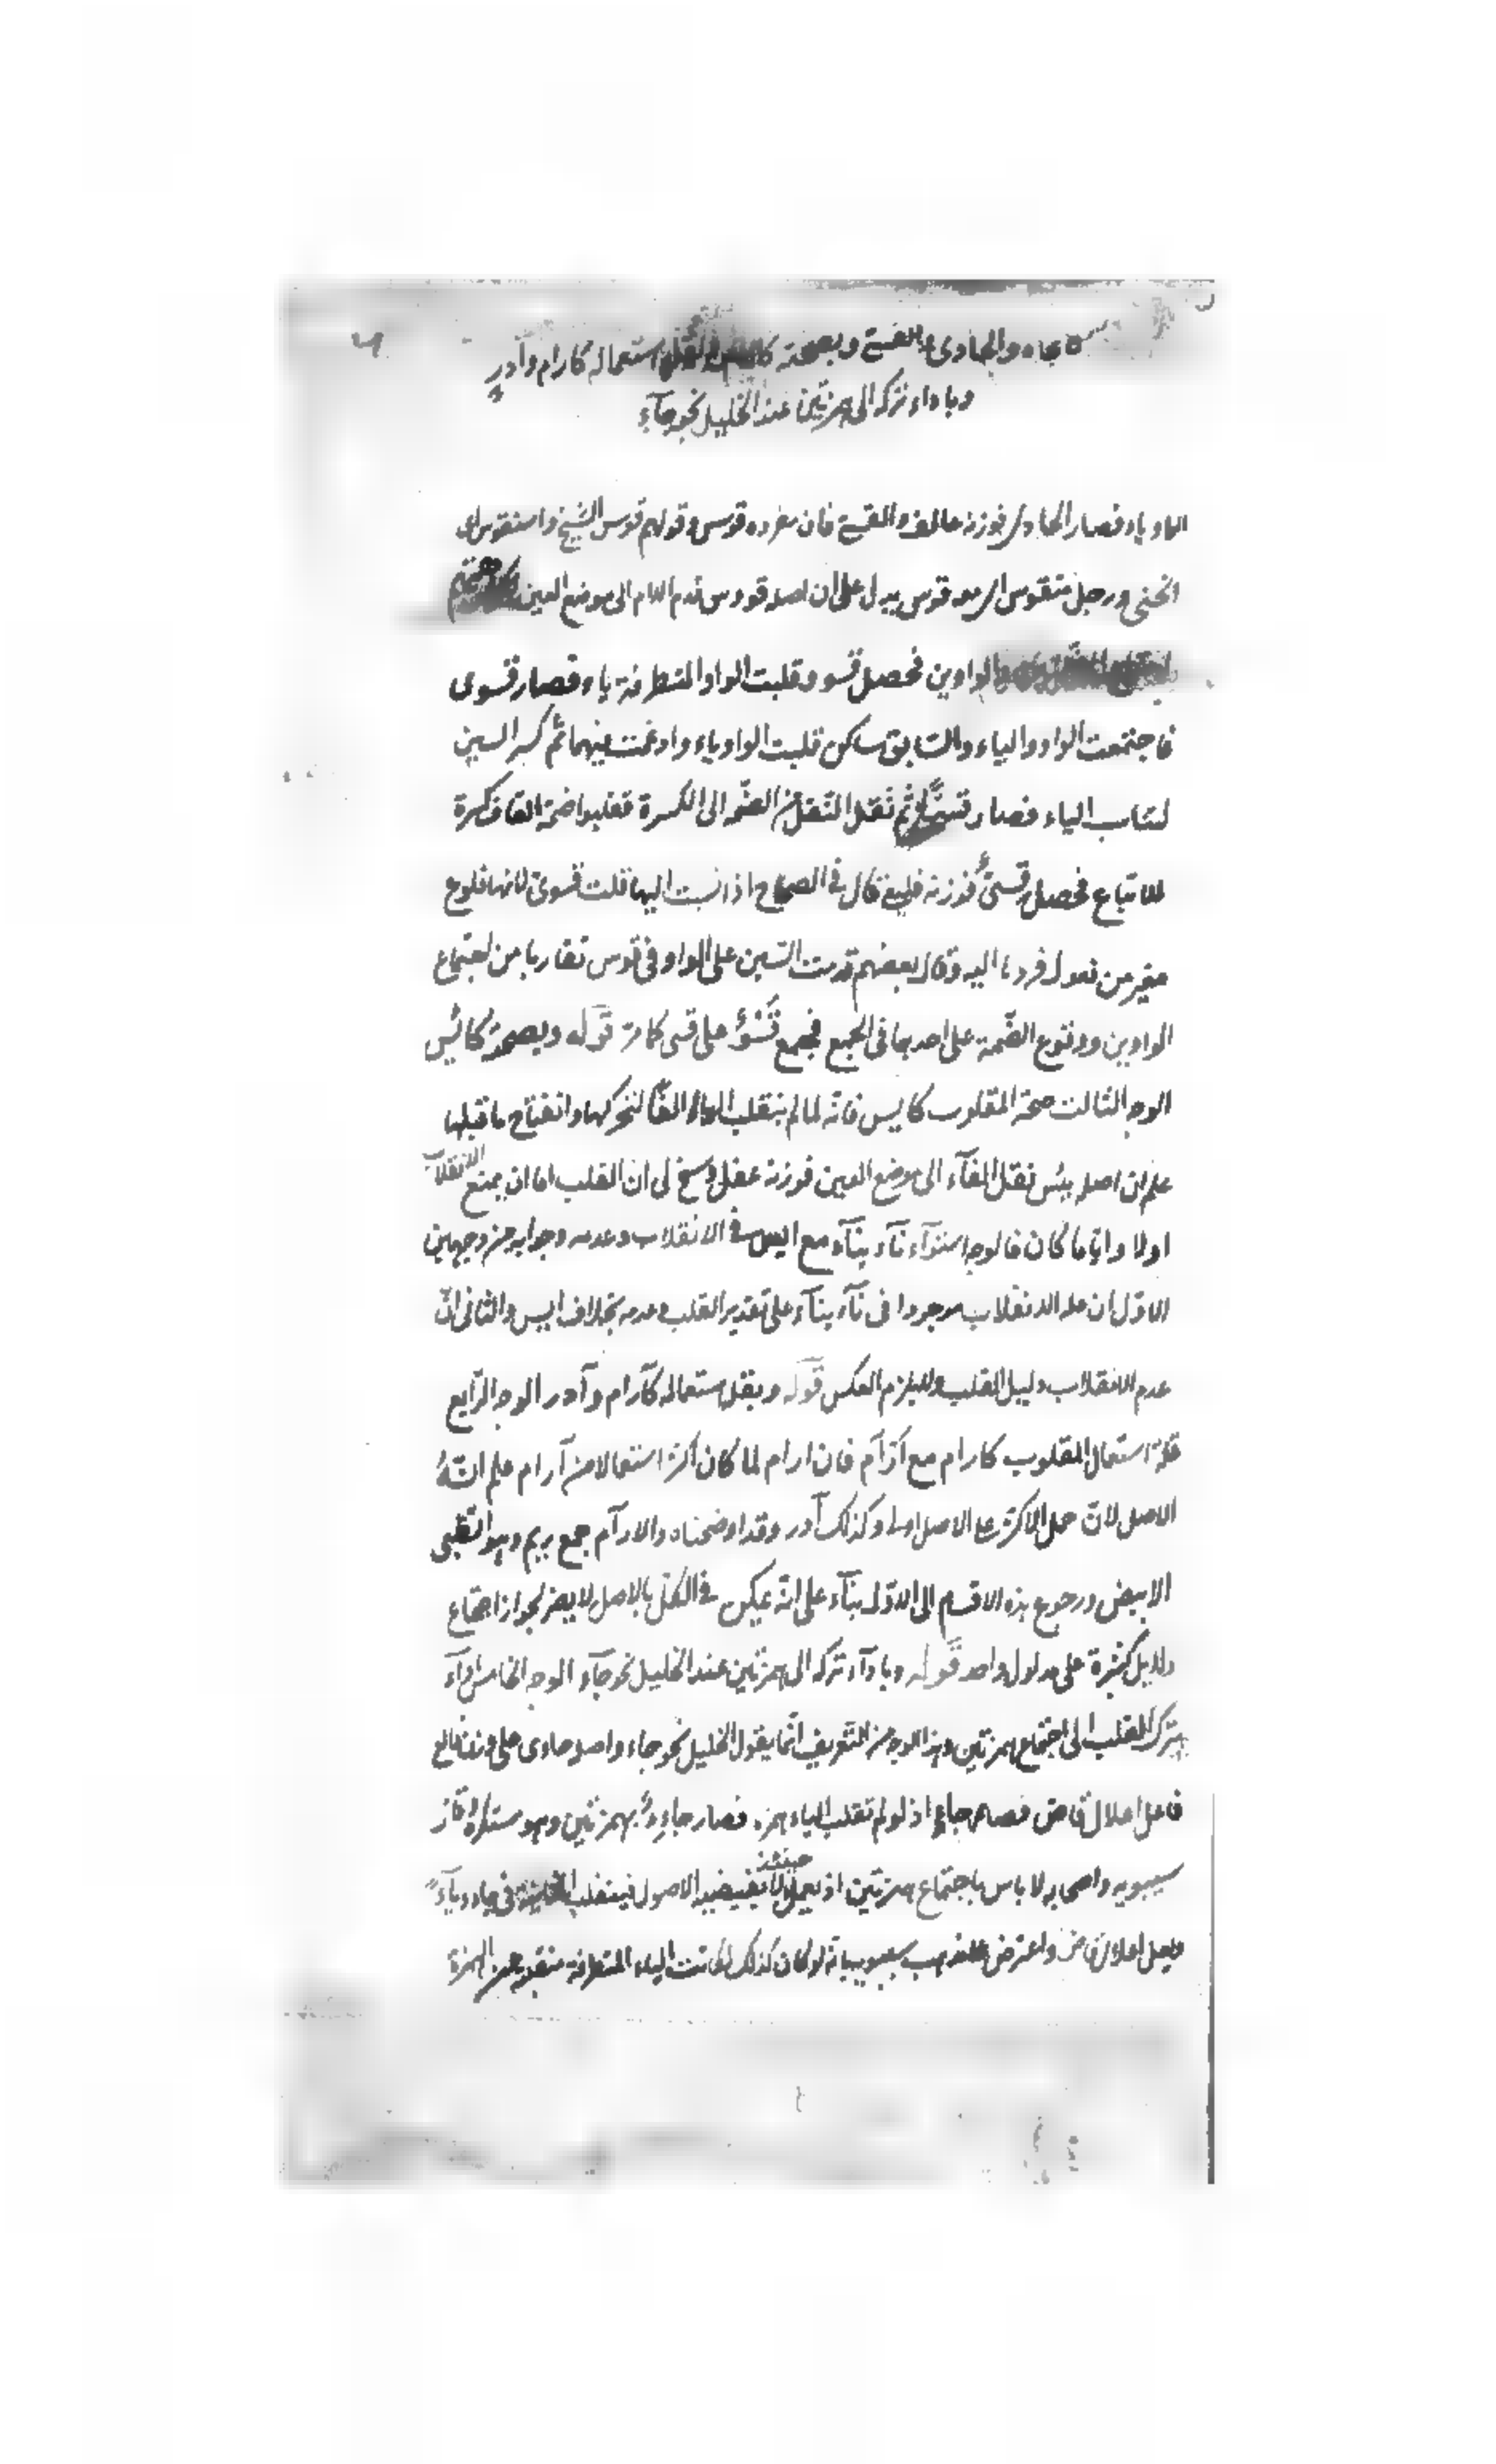 كالجاه والحادي والقسي وبصحته كايس وبقلة استعماله كارام وآدر
وباداء تركه الى همزتين عند الخليل نحو جآء
الواو ياء فصار الحادي فوزنه عالف والقسي فان مفرده قوس وقولهم قوس الشيخ واستقوس اى
انحنى ورجل متقوس اى معه قوس يدل على ان اصله قووس قدم اللام الى موضع العين
الواوين فحصل قسوو قلبت الواو المتطرفة ياء فصار قسوى
فاجتمعت الواو والياء والسابق ساكن قلبت الواو ياء وادغمت فيهما ثم كسر السين
لتناسب الياء فصار قسى ثم ثقل النقل من الضمه الى الكسرة فقلبوا ضمة القاف كسرة
للاتباع فحصل قسى فوزنه فليع قال فى الصحاح اذا نسبت اليها قلت قسوى لانها فلوع
مغير من فعول فردها اليه وقال بعضهم قدمت السين على الواو فى قوس تفاديا من اجتماع
الواوين ووقوع الضمة على احدهما فى الجمع فجمع قسو على قسى كما مر قوله وبصحته كايس
الوجه الثالث صحة المقلوب كايس فانه لما لم ينقلب الياء الفا لتحركها وانفتاح ما قبلها
علم ان اصله يئس نقل الفآء الى موضع العين فوزنه عفل وسنح لى ان القلب اما ان يمنع الانقلاب
اولا واياما كان فالوجه استوآء نآء ينآء مع ايس فى الانقلاب وعدمه وجوابه من وجهين
الاول ان علة الانقلاب موجودا فى نآء ينآء على تقدير القلب وعدمه بخلاف ايس والثانى ان
عدم الانقلاب دليل القلب ولا يلزم العكس قوله وبقلة استعماله كآرام وآدر الوجه الرابع
قلة استعمال المقلوب كارام مع ارآم فان ارام لما كان اكثر استعمالا من آرام علم انه
الاصل لان حمل الاكثر على الاصل اولى وكذلك آدر وقد اوضحناه والارآم جمع ريم وهو الظبى
الابيض ورجوع هذه الاقسام الى الاول بنآء على انه يمكن فى الكل بالاصل لا يضر لجواز اجتماع
دلايل كثيرة على مدلول واحد قوله وباداء تركه الى همزتين عند الخليل نحو جآء الوجه الخامس ادآء
ترك القلب الى اجتماع همزتين وهذا الوجه من التعريف انما يقول الخليل نحو جاء واصله جاءى على وزن فالع
فاعل اعلال قاض فصار جاء اذ لو لم تقلب الياء همزه فصار جاءء بهمزتين وهو مستكره قال
سيبويه واصحابه لا باس باجتماع همزتين اذ يعمل حينئذ بمقتضى الاصول فينقلب الثانية فى جاء ياء
ويعل اعلال قاض واعترض على مذهب سيبويه بانه لو كان كذلك لكانت الياء المتطرفة منقلبة عن الهمزة